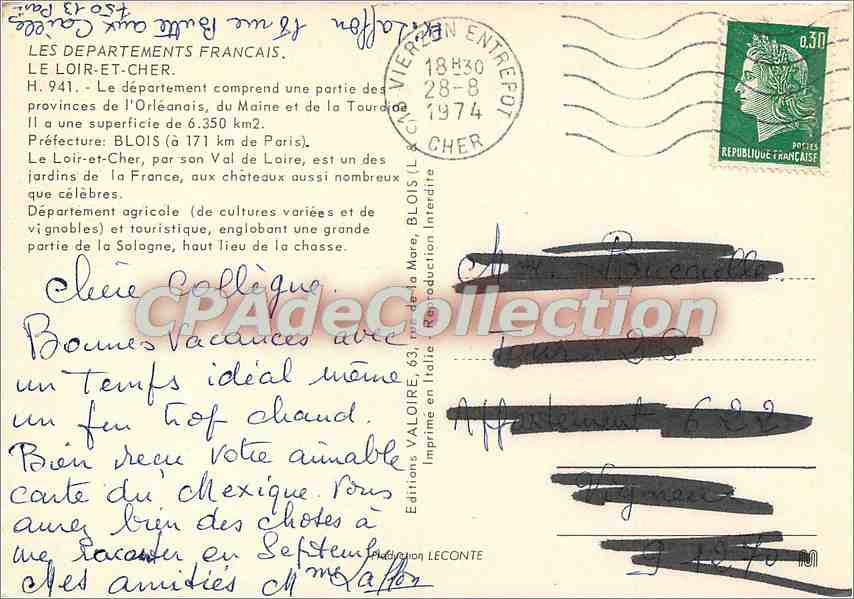 Ex. Laffon 18 rue Butte aux Cailles
75013 Paris
LES DEPARTEMENTS FRANCAIS.
LE LOIR-ET-CHER.
H. 941. - Le département comprend une partie des
provinces de l'Orléanais, du Maine et de la Touraine
Il a une superficie de 6.350 km2.
Préfecture: BLOIS (à 171 km de Paris).
Le Loir-et-Cher, par son Val de Loire, est un des
jardins de la France, aux châteaux aussi nombreux
que célèbres.
Département agricole (de cultures variées et de
vignobles) et touristique, englobant une grande
partie de la Sologne, haut lieu de la chasse.
VIERZON ENTREPOT
18H30
28-8
1974
CHER
0,30
POSTES
REPUBLIQUE FRANÇAISE
Chère Collègue.
Bonnes Vacances avec
un temps idéal même
un peu trop chaud.
Bien reçu votre aimable
carte du Mexique. Vous
aurez bien des choses à
me raconter en Septembre
Mes amitiés Mme Laffon
Editions VALOIRE, 63, rue de la Mare, BLOIS (L. & C.)
Imprimé en Italie - Reproduction Interdite
CPAdeCollection
Appartement 622
Production LECONTE